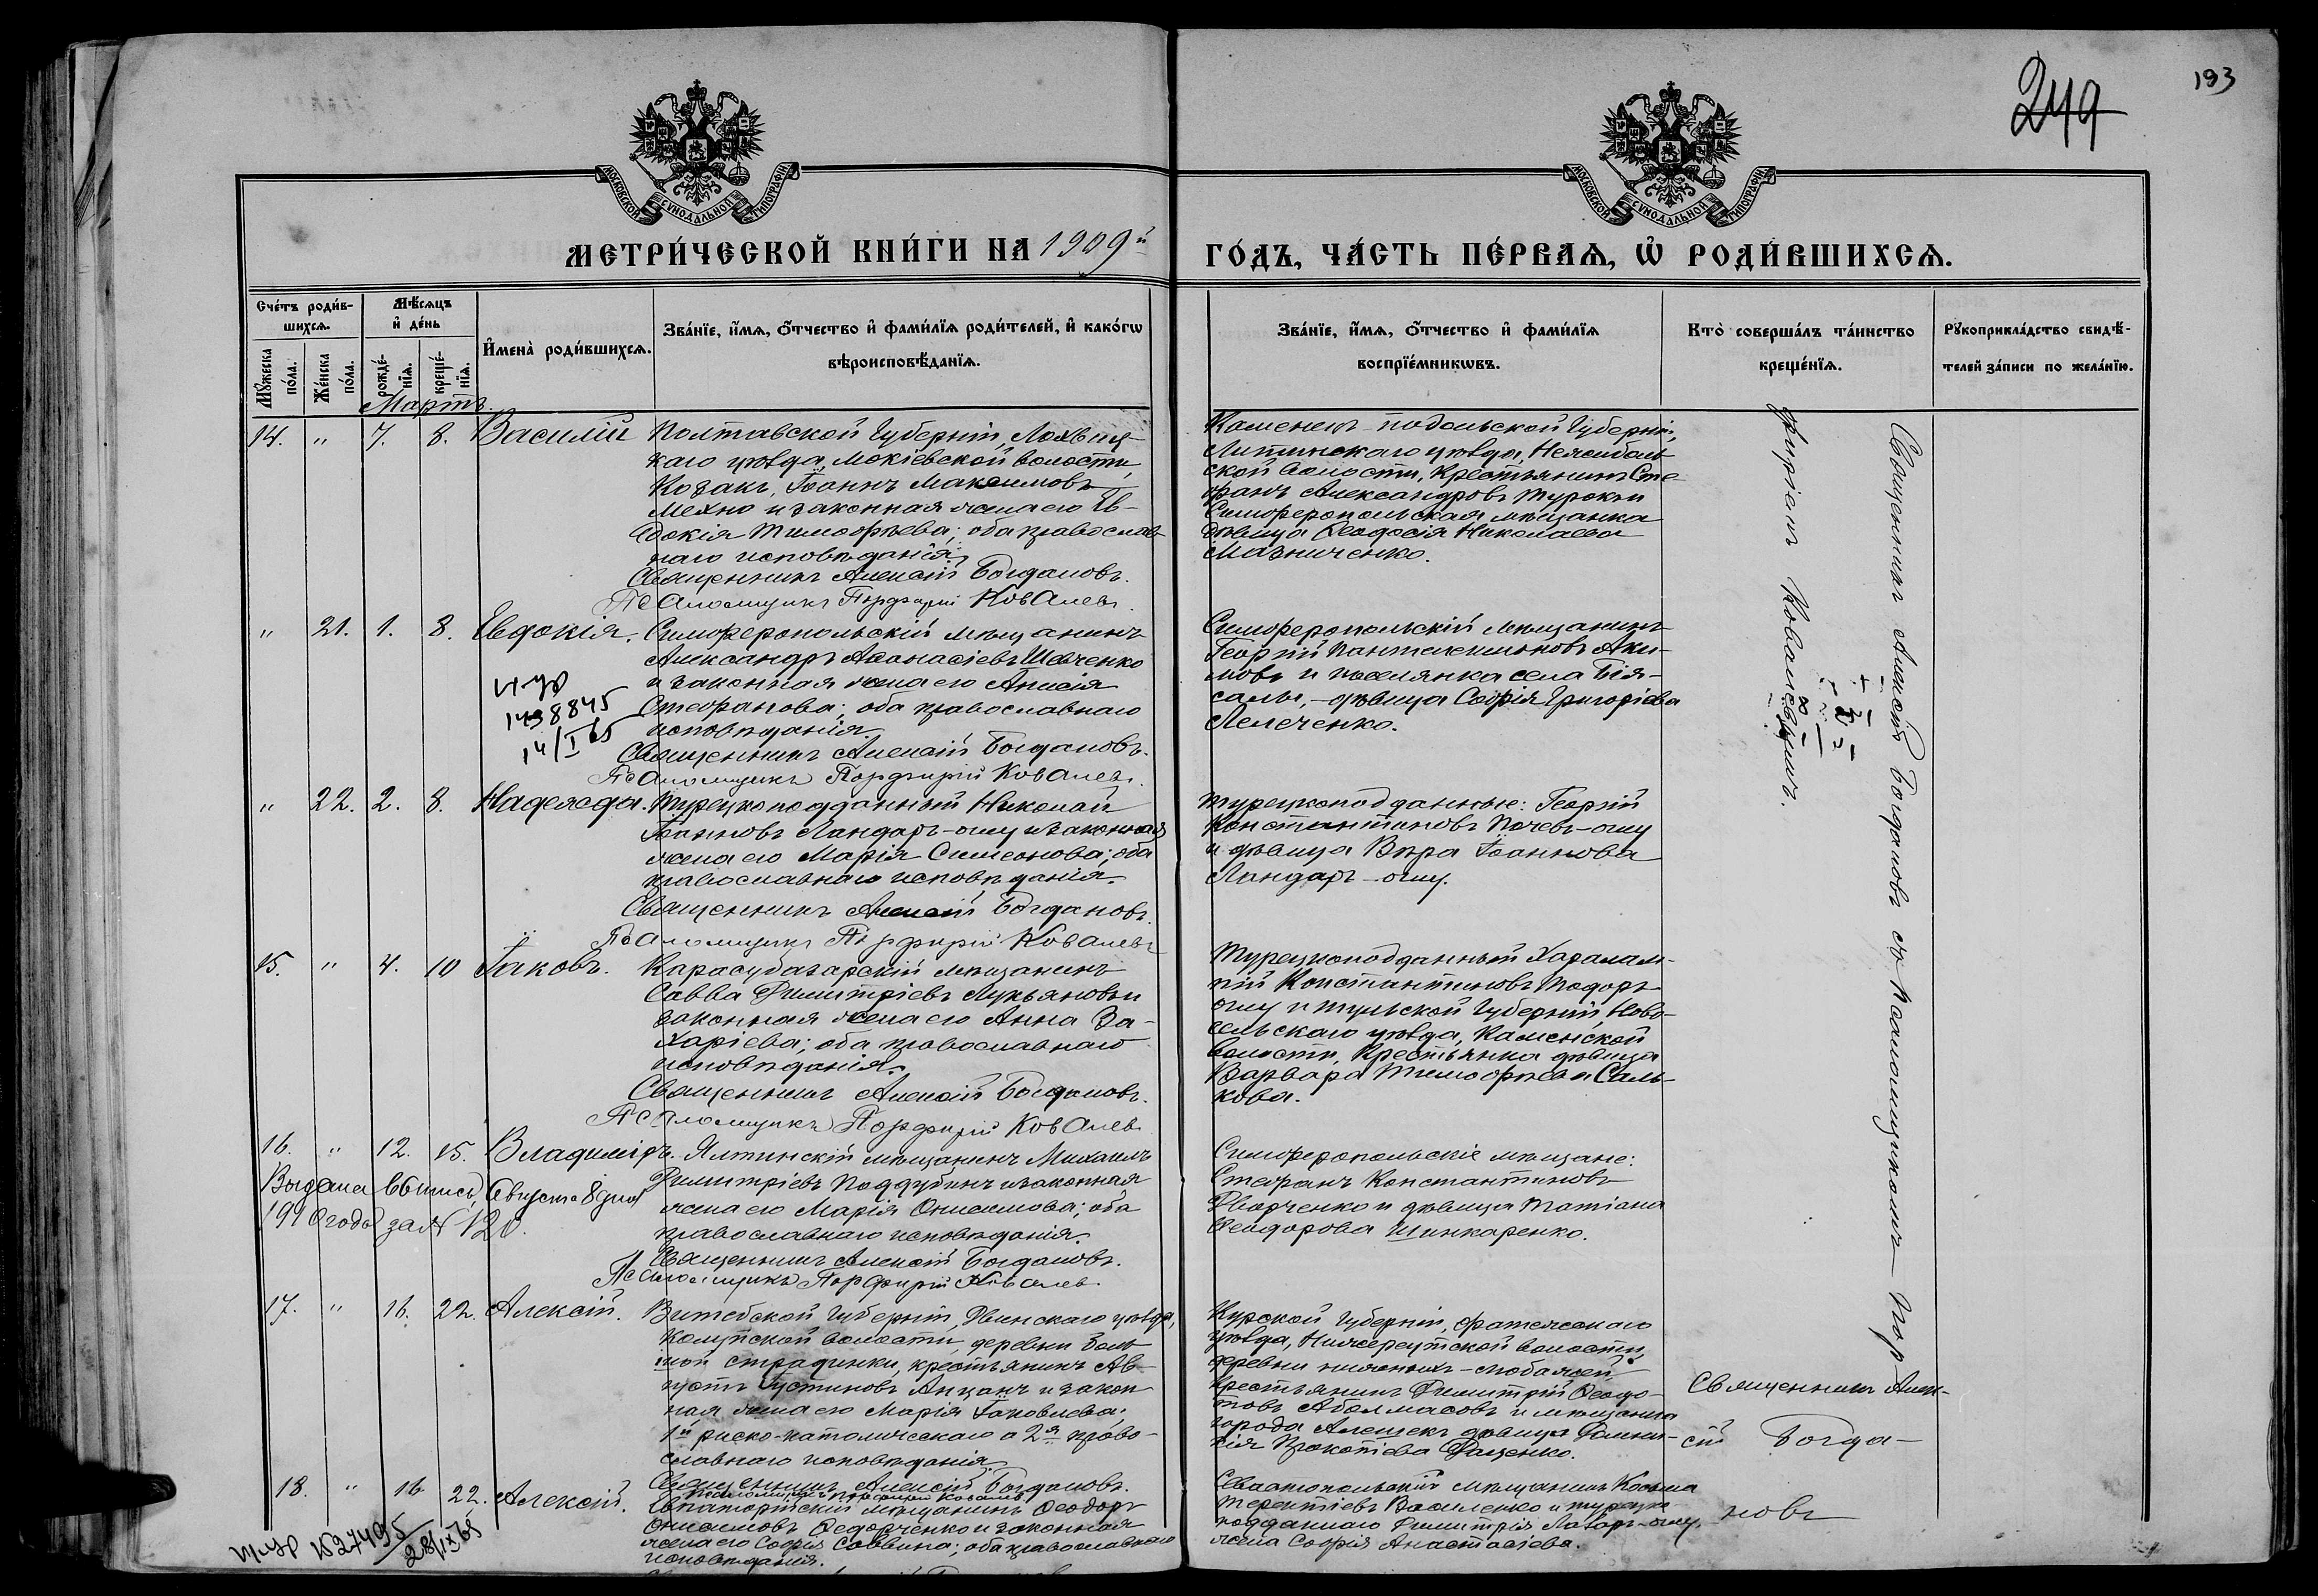 249
193
МОСКОВСКОЙ СѴНОДАЛЬНОЙ ТИПОГРАФІИ
МОСКОВСКОЙ СѴНОДАЛЬНОЙ ТИПОГРАФІИ
МЕТРИ́ЧЕСКОЙ КНИ́ГИ НА 1909й ГО́ДЪ, ЧА́СТЬ ПЕ́РВАѦ, Ѡ҆ РОДИ́ВШИХСѦ.
Сче́тъ роди́в-
шихсѧ.
Мѣ́сѧцъ
и҆ де́нь
Мꙋ́жеска
по́ла.
Же́нска
по́ла.
рожде́-
нїѧ.
креще́-
нїѧ.
И҆мена̀ роди́вшихсѧ.
Зва́нїе, и҆́мѧ, ѻ҆́тчество и҆ фами́лїѧ роди́телей, и҆ како́гѡ
вѣроисповѣ́данїѧ.
Зва́нїе, и҆́мѧ, ѻ҆́тчество и҆ фами́лїѧ
воспрїе́мникѡвъ.
Кто̀ соверша́лъ та́инство
креще́нїѧ.
Рꙋкоприкла́дство свидѣ́-
телей за́писи по жела́нїю.
Мартъ.
14. " 7. 8. Василій
Полтавской Губерніи, Лохвиц-
каго уѣзда, Мокіевской волости,
Козакъ, Іоаннъ Максимовъ
Мехно и законная жена его Ев-
докія Тимоѳѣева; оба православ-
наго исповѣданія.
Священникъ Алексій Богдановъ.
Псаломщикъ Порфирій Ковалевъ.
Каменецъ-подольской Губерніи,
Литинскаго уѣзда,
ской волости, Крестьянинъ Сте-
фанъ Александровъ Турокъ и
Симферопольская мѣщанка
дѣвица Ѳеодосія Николаева
Мазниченко.
" 21. 1. 8. Евдокія.
Симферопольскій мѣщанинъ
Александръ Аѳанасіевъ Шевченко
и законная жена его Анисія
Стефанова; оба православнаго
исповѣданія.
Священникъ Алексій Богдановъ.
Псаломщикъ Порфирій Ковалевъ.
8845
14/I 65
Симферопольскій мѣщанинъ
Георгій Пантелеимоновъ Аки-
мовъ и поселянка села Бія-
салы, – дѣвица Софія Григоріева
Лелеченко.
" 22. 2. 8. Надежда.
Турецкоподданный Николай
Іоанновъ Ландаръ-оглу и законная
жена его Марія Симеонова; оба
православнаго исповѣданія.
Священникъ Алексій Богдановъ.
Псаломщикъ Порфирій Ковалевъ
Турецкоподданные: Георгій
Константиновъ -оглу
и дѣвица Вѣра Іоаннова
Ландаръ-оглу.
15. " 4. 10 Іаковъ.
Карасубазарскій мѣщанинъ
Савва Димитріевъ Лукьяновъ и
законная жена его Анна За-
харіева; оба православнаго
исповѣданія.
Священникъ Алексій Богдановъ.
Псаломщикъ Порфирій Ковалев
Турецкоподданный Харалам-
пій Константиновъ Тодоръ
оглу и Тульской Губерніи, Ново-
сельскаго уѣзда, Каменской
волости, Крестьянка дѣвица
Варвара Тимоѳѣева Саль-
кова.
16. " 12. 15. Владиміръ.
Ялтинскій мѣщанинъ Михаилъ
Димитріевъ Поддубинъ и законная
жена его Марія Онисимова; оба
православнаго исповѣданія.
Священникъ Алексій Богдановъ.
Псаломщикъ Порфирій Ковалев.
Выдана выпись, Августа 8 дня
1910 года за № 120.
Симферопольскіе мѣщане:
Стефанъ Константиновъ
Дворченко и дѣвица Татіана
Ѳеодорова Шинкаренко.
17. " 16. 22. Алексій.
Витебской Губерніи, Двинскаго уѣзда,
волости, деревни Боль
шой Страдинки, крестьянинъ Ав-
густъ Густиновъ Анцанъ и закон
ная жена его Марія Іаковлева;
1й римско-католическаго а 2я право-
славнаго исповѣданія.
Священникъ Алексій Богдановъ.
Псаломщикъ Порфирій Ковалев
Курской Губерніи, Фатежскаго
уѣзда, Нижнереутской волости,
деревни
крестьянинъ Димитрій Ѳеодо-
товъ Аболмасовъ и мѣщанка
города Алешекъ дѣвица Домни-
кія Прокопіева Фащенко.
Священникъ Алек-
сій Богда-
новъ
18. " 16 22. Алексій.
Евпаторійскій мѣщанинъ Ѳеодоръ
Онисимовъ Ѳедорченко и законная
жена его Софія Саввина; оба православнаго
исповѣданія.
1827495
28/IX 65
Севастопольскій мѣщанинъ Косьма
Терентіевъ Василенко и турецко
подданнаго Димитрія Лазаръ-оглу
жена Софія Анастасіева.
Священникъ Алексій Богдановъ съ псаломщикомъ Пор-
фиріемъ Ковалевымъ.